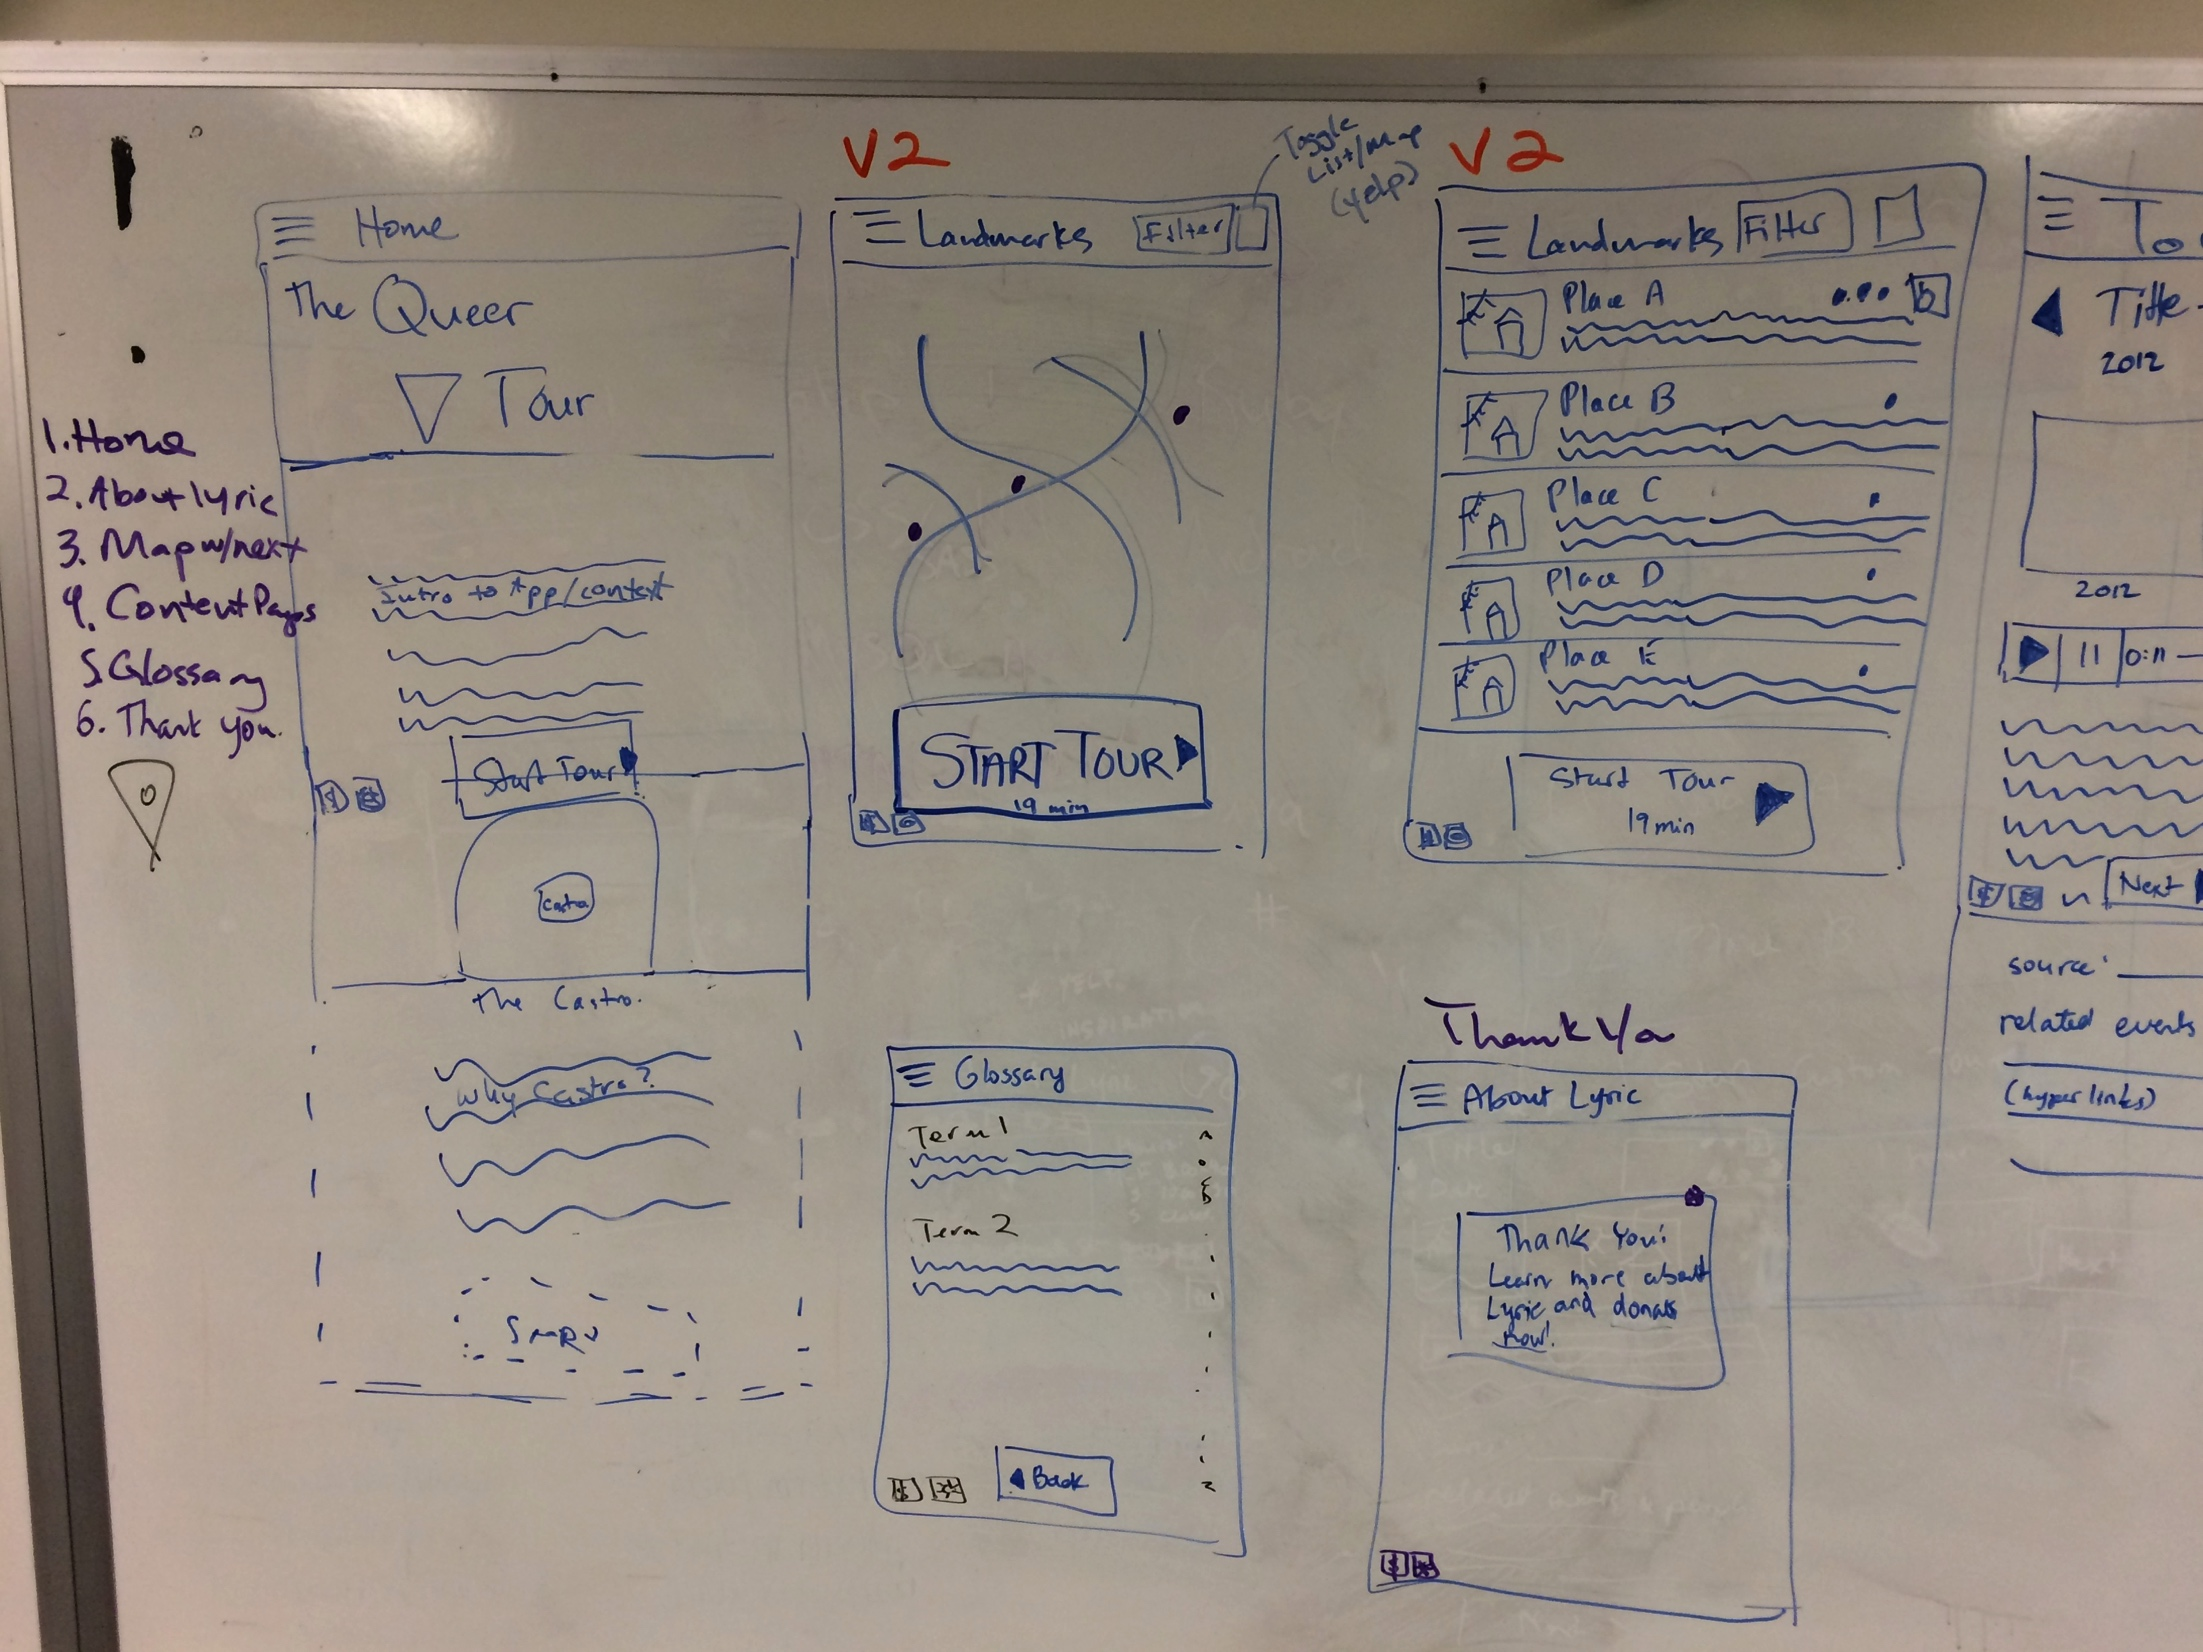 1. Home
2. About lyric
3. Map w/next
4. Content Pages
5. Glossary
6. Thank you.
Home
The Queer
Tour
Intro to App/context
Start Tour
Castro
The Castro.
Why Castro?
V2
Toggle
List/Map
(yelp)
Landmarks
Filter
START TOUR
19 min
V2
Landmarks
Filter
Place A
Place B
Place C
Place D
Place E
Start Tour
19 min
Title
2012
2012
0:11
Next
source:
related events
(hyperlinks)
Glossary
Term 1
Term 2
Back
Thank Yo
About Lyric
Thank You!
Learn more about
Lyric and donate
now!